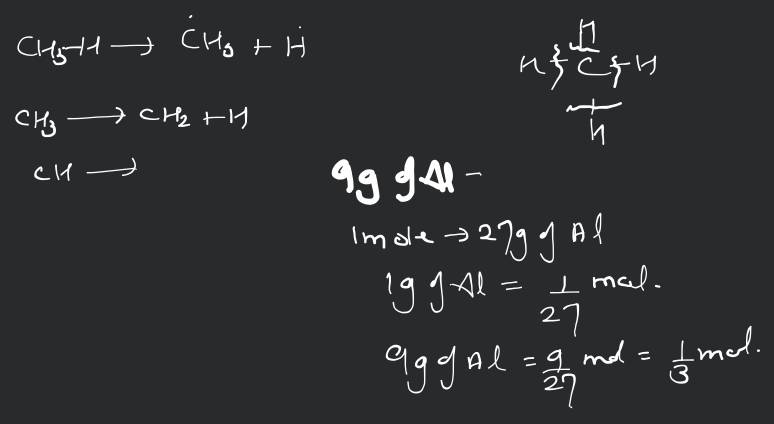 CH₃-H → ĊH₃ + Ḣ
CH₃ → CH₂ + H
CH →
H
H C H
H
9g of Al -
1 mole → 27g of Al
1g of Al = 1/27 mol.
9g of Al = 9/27 mol = 1/3 mol.